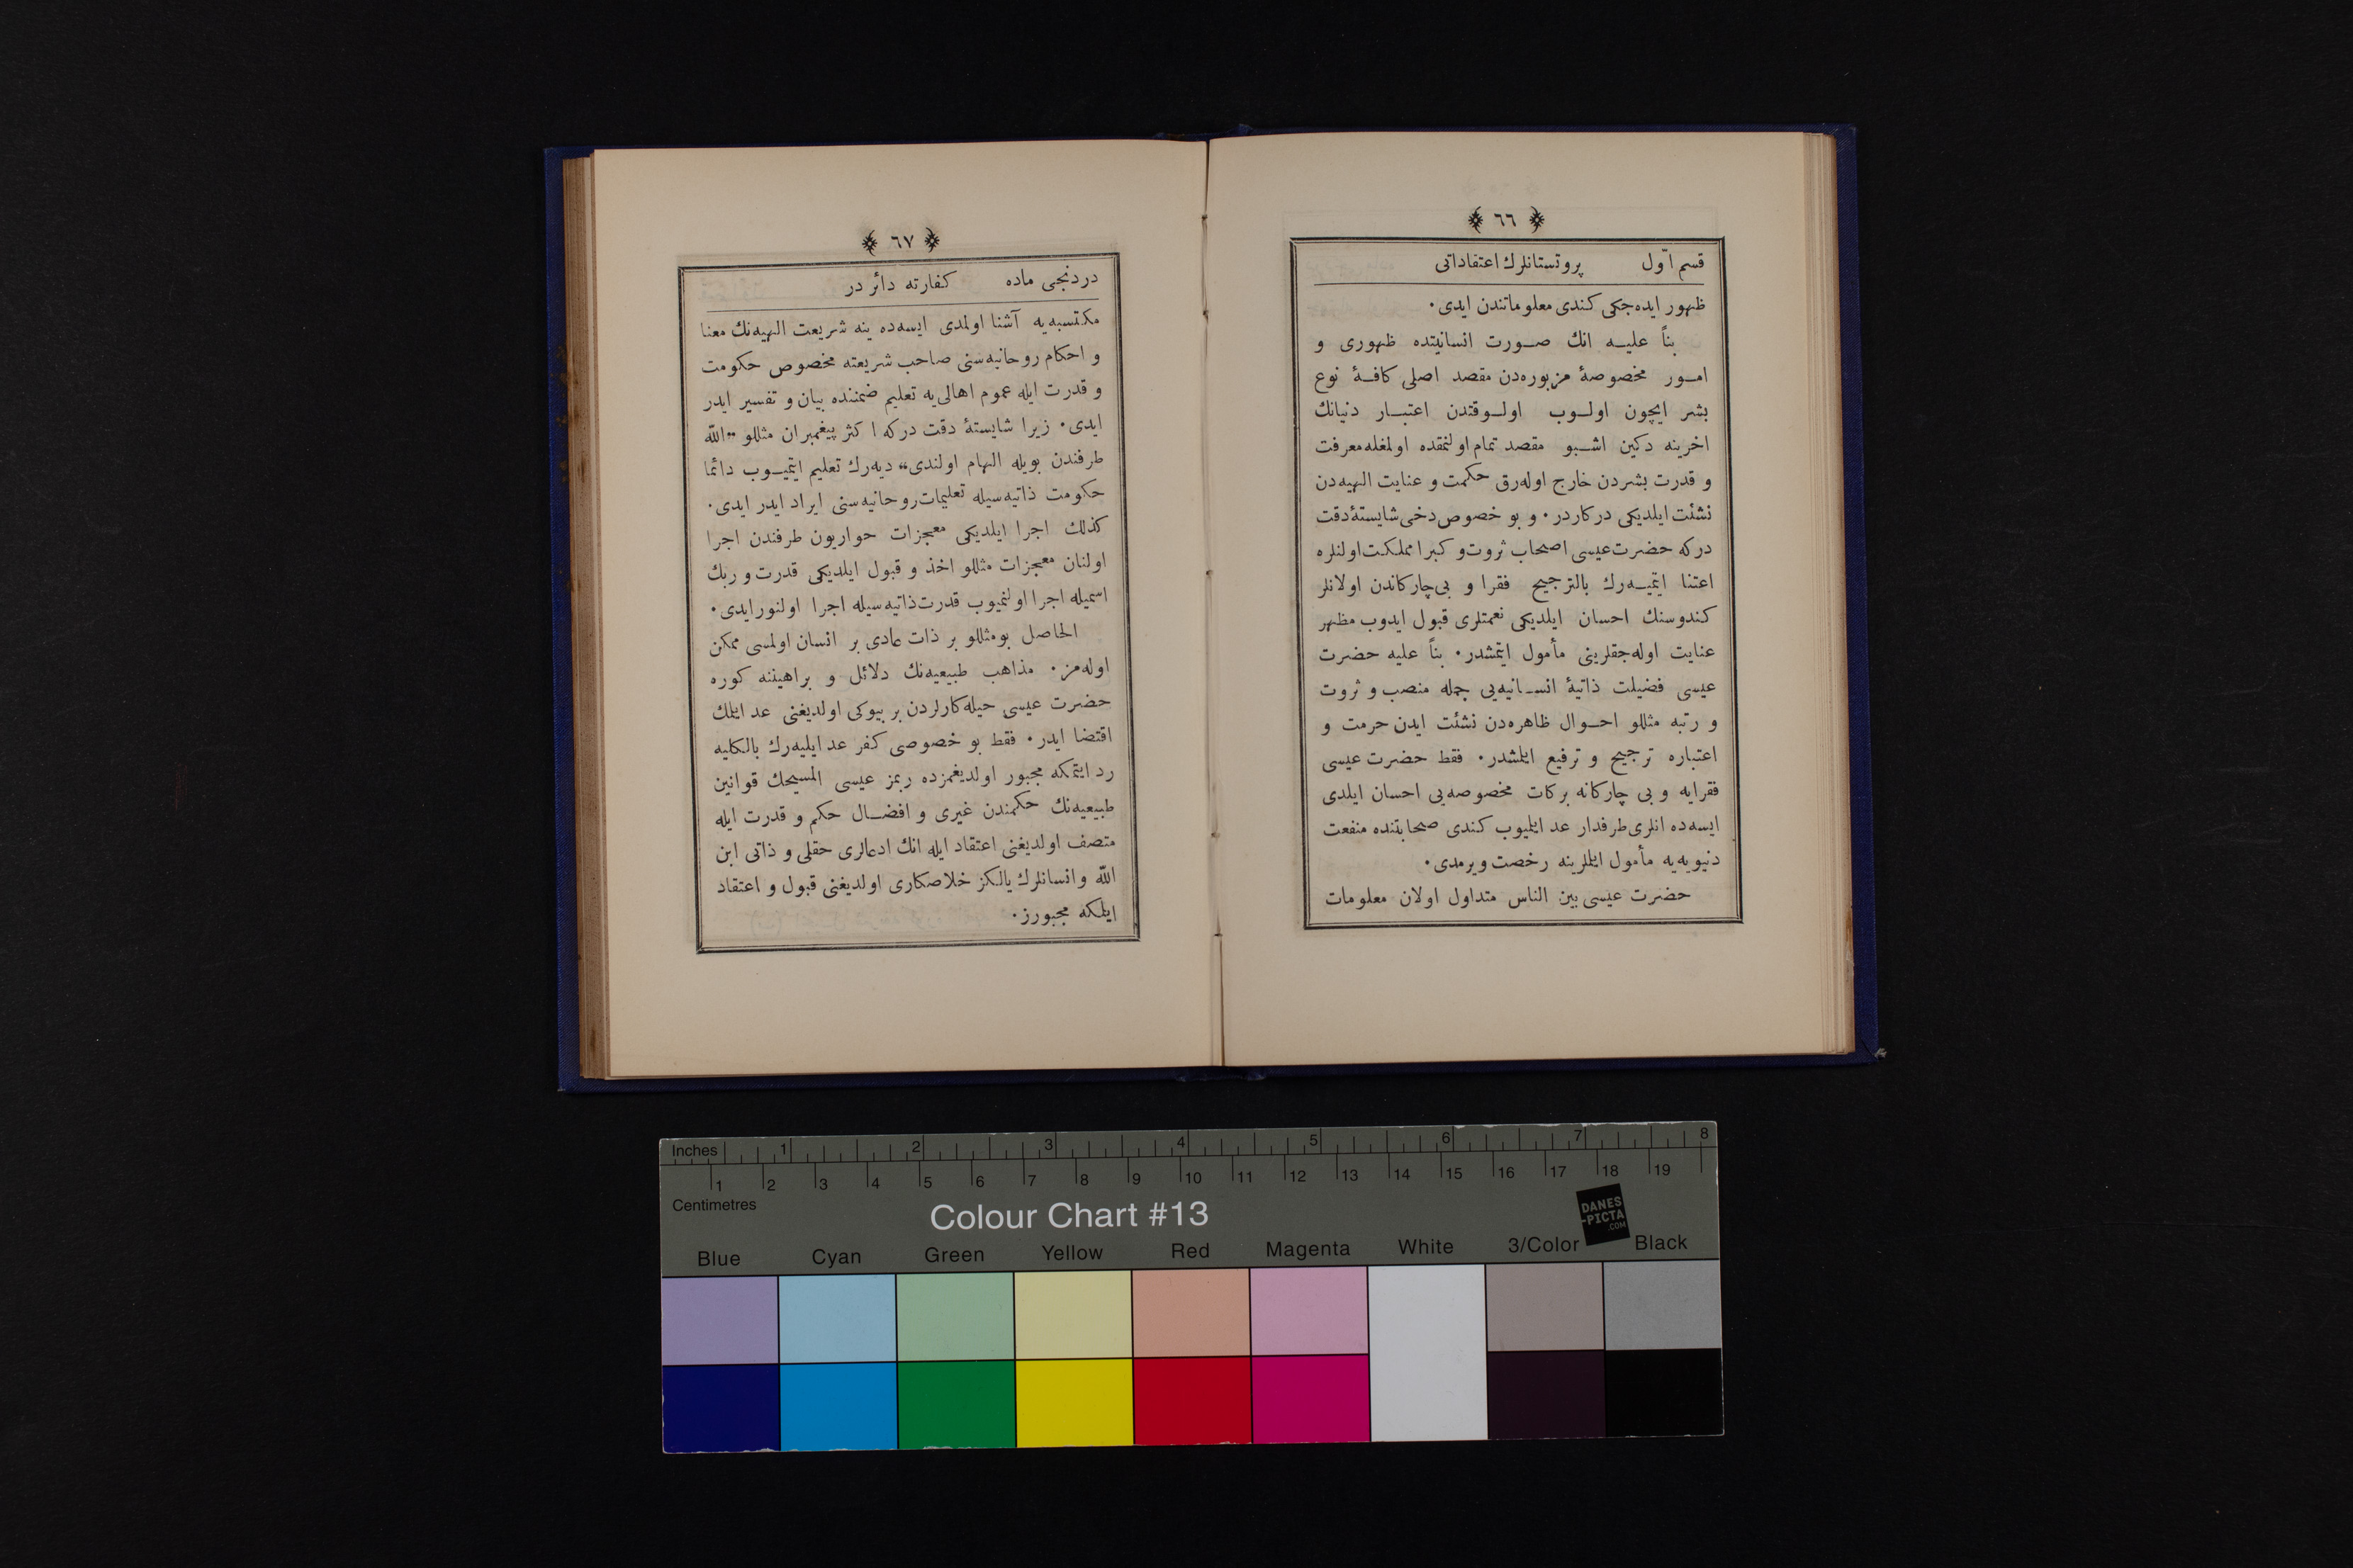 ﴾ ٦٦ ﴿
قسم اوّل پروتستانلرك اعتقاداتی
ظهور ایده‌جکی کندی معلوماتندن ایدی۰
بناً علیـه انك صـورت انسانیتده ظهوری و
امـور مخصوصهٔ مزبوره‌دن مقصد اصلی کافـهٔ نوع
بشر ایچون اولـوب اولـوقتدن اعتبـار دنیانك
اخرینه دکین اشـبو مقصد تمام اولنمقده اولمغله معرفت
و قدرت بشردن خارج اوله‌رق حکمت و عنایت الهیه‌دن
نشئت ایلدیکی درکاردر۰ و بو خصوص دخی شایستهٔ دقت
درکه حضرت عیسی اصحاب ثروت و کبرا مملکت اولنلره
اعتنا ایتمیـه‌رك بالترجیح فقرا و بی‌چارکاندن اولانلر
کندوسنك احسان ایلدیکی نعمتلری قبول ایدوب مظهر
عنایت اوله‌جقلرینی مأمول ایتمشدر۰ بناً علیه حضرت
عیسی فضیلت ذاتیهٔ انسـانیه‌یی جمله منصب و ثروت
و رتبه مثللو احـوال ظاهره‌دن نشئت ایدن حرمت و
اعتباره ترجیح و ترفیع ایلمشدر۰ فقط حضرت عیسی
فقرایه و بی چارکانه برکات مخصوصه‌یی احسان ایلدی
ایسه‌ده انلری طرفدار عد ایلیوب کندی صحابتنده منفعت
دنیویه‌یه مأمول ایللرینه رخصت ویرمدی۰
حضرت عیسی بین الناس متداول اولان معلومات
﴾ ٦٧ ﴿
دردنجی ماده کفارته دائر در
مکتسبه‌یه آشنا اولمدی ایسه‌ده ینه شریعت الهیه‌نك معنا
و احکام روحانیه‌سنی صاحب شریعته مخصوص حکومت
و قدرت ایله عموم اهالی‌یه تعلیم ضمننده بیان و تفسیر ایدر
ایدی۰ زیرا شایستهٔ دقت درکه اکثر پیغمبران مثللو „اللّه
طرفندن بویله الهام اولندی“ دیه‌رك تعلیم ایتمیـوب دائما
حکومت ذاتیه‌سیله تعلیمات روحانیه‌سنی ایراد ایدر ایدی۰
کذلك اجرا ایلدیکی معجزات حواریون طرفندن اجرا
اولنان معجزات مثللو اخذ و قبول ایلدیکی قدرت و ربك
اسمیله اجرا اولنمیوب قدرت ذاتیه‌سیله اجرا اولنور ایدی۰
الحاصل بومثللو بر ذات عادی بر انسان اولمسی ممکن
اوله‌مز۰ مذاهب طبیعیه‌نك دلائل و براهیننه کوره
حضرت عیسی حیله‌کارلردن بر بیوکی اولدیغنی عد ایلمك
اقتضا ایدر۰ فقط بو خصوصی کفر عد ایلیه‌رك بالکلیه
رد ایتمکه مجبور اولدیغمزده ربمز عیسی المسیحك قوانین
طبیعیه‌نك حکمندن غیری و افضـال حکم و قدرت ایله
متصف اولدیغنی اعتقاد ایله انك ادعالری حقلی و ذاتی ابن
اللّه و انسانلرك یالکز خلاصکاری اولدیغنی قبول و اعتقاد
ایلمکه مجبورز۰
Inches 1 2 3 4 5 6 7 8
1 2 3 4 5 6 7 8 9 10 11 12 13 14 15 16 17 18 19
Centimetres
Colour Chart #13
DANES
-PICTA
.COM
Blue Cyan Green Yellow Red Magenta White 3/Color Black